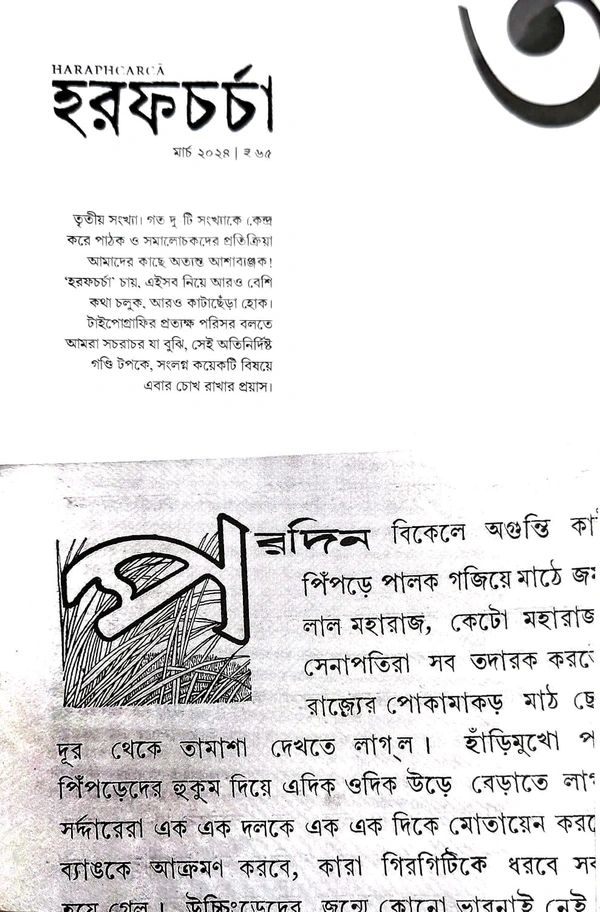 ৩
HARAPHCARCĀ
হরফচর্চা
মার্চ ২০২৪ | ₹ ৬৫
তৃতীয় সংখ্যা। গত দু টি সংখ্যাকে কেন্দ্র
করে পাঠক ও সমালোচকদের প্রতিক্রিয়া
আমাদের কাছে অত্যন্ত আশাব্যঞ্জক!
‘হরফচর্চা’ চায়, এইসব নিয়ে আরও বেশি
কথা চলুক, আরও কাটাছেঁড়া হোক।
টাইপোগ্রাফির প্রত্যক্ষ পরিসর বলতে
আমরা সচরাচর যা বুঝি, সেই অতিনির্দিষ্ট
গণ্ডি টপকে, সংলগ্ন কয়েকটি বিষয়ে
এবার চোখ রাখার প্রয়াস।
পরদিন বিকেলে অগুন্তি
পিঁপড়ে পালক গজিয়ে মাঠে
লাল মহারাজ, কেটো মহারাজ
সেনাপতিরা সব তদারক করতে
রাজ্যের পোকামাকড় মাঠ
দূর থেকে তামাশা দেখতে লাগ্‌ল। হাঁড়িমুখো
পিঁপড়েদের হুকুম দিয়ে এদিক ওদিক উড়ে বেড়াতে
সর্দ্দারেরা এক এক দলকে এক এক দিকে মোতায়েন
ব্যাঙকে আক্রমণ করবে, কারা গিরগিটিকে ধরবে সব
হয়ে গেল। উচ্চিংড়েদের জন্যে কোনো ভাবনাই নেই